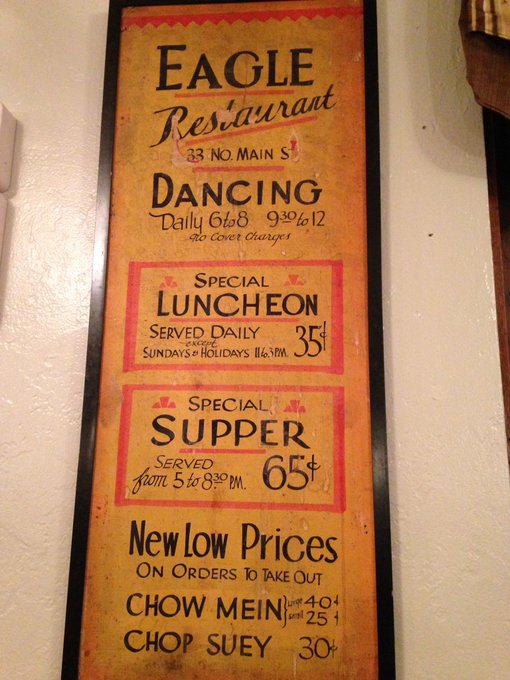 EAGLE
Restaurant
33 NO. MAIN ST
DANCING
Daily 6 to 8 9:30 to 12
No Cover Charges
SPECIAL
LUNCHEON
SERVED DAILY 35¢
except
SUNDAYS & HOLIDAYS 11 to 3 P.M.
SPECIAL
SUPPER
SERVED 65¢
from 5 to 8:30 P.M.
New Low Prices
ON ORDERS TO TAKE OUT
CHOW MEIN } LARGE 40¢
SMALL 25¢
CHOP SUEY 30¢